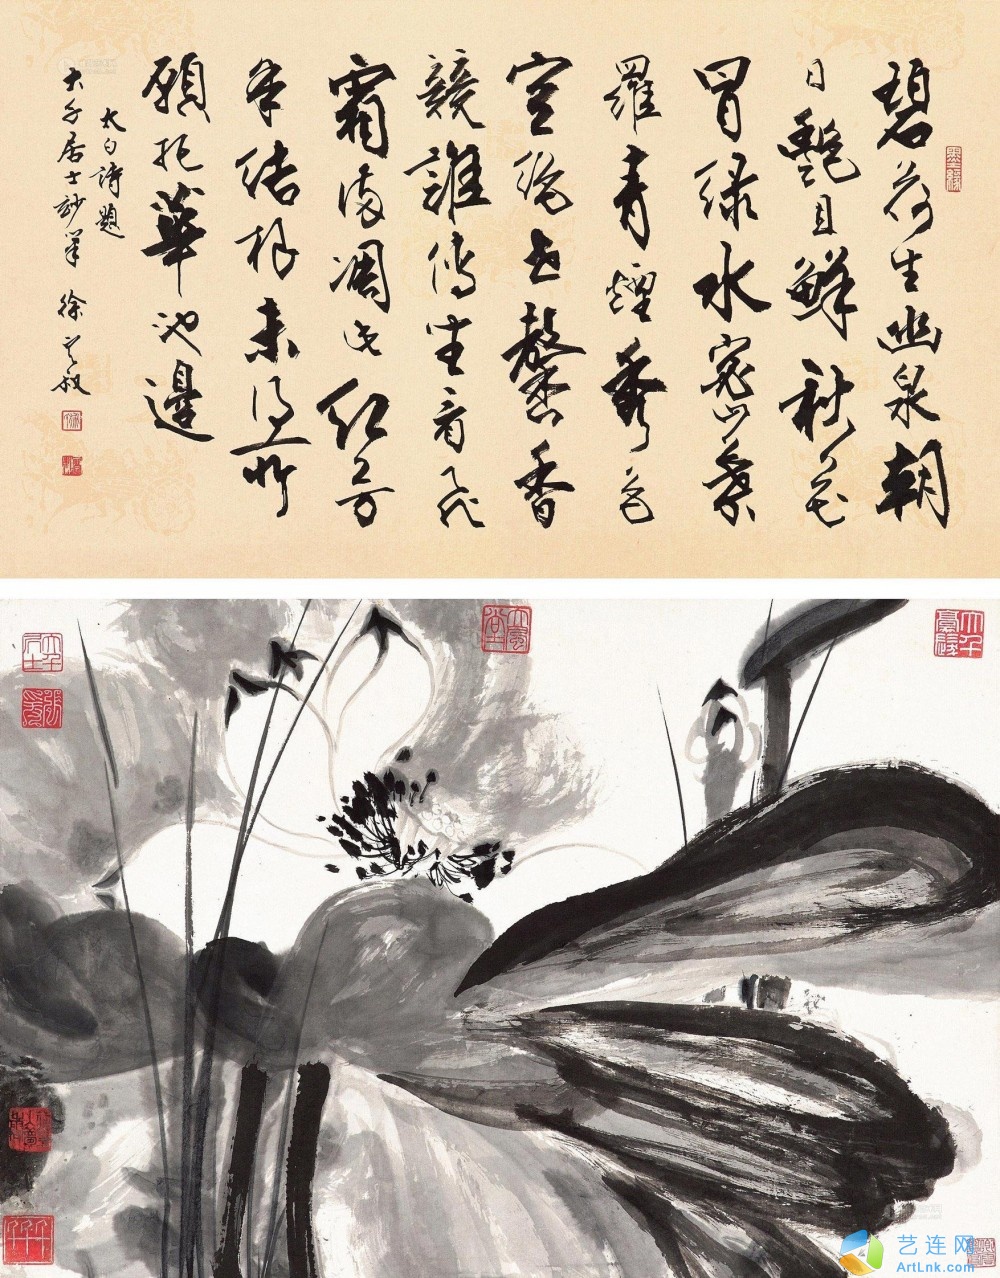 碧荷生幽泉朝
日艷且鮮秋花
冒綠水密葉
羅青煙秀色
空絕世馨香
競誰傳坐看飛
霜滿凋此紅芳
年結根未得所
願托華池邊
太白詩題
大千居士妙筆 徐
墨緣
大千居士
張爰
大風堂
大千豪髮
艺连网
ArtLnk.com